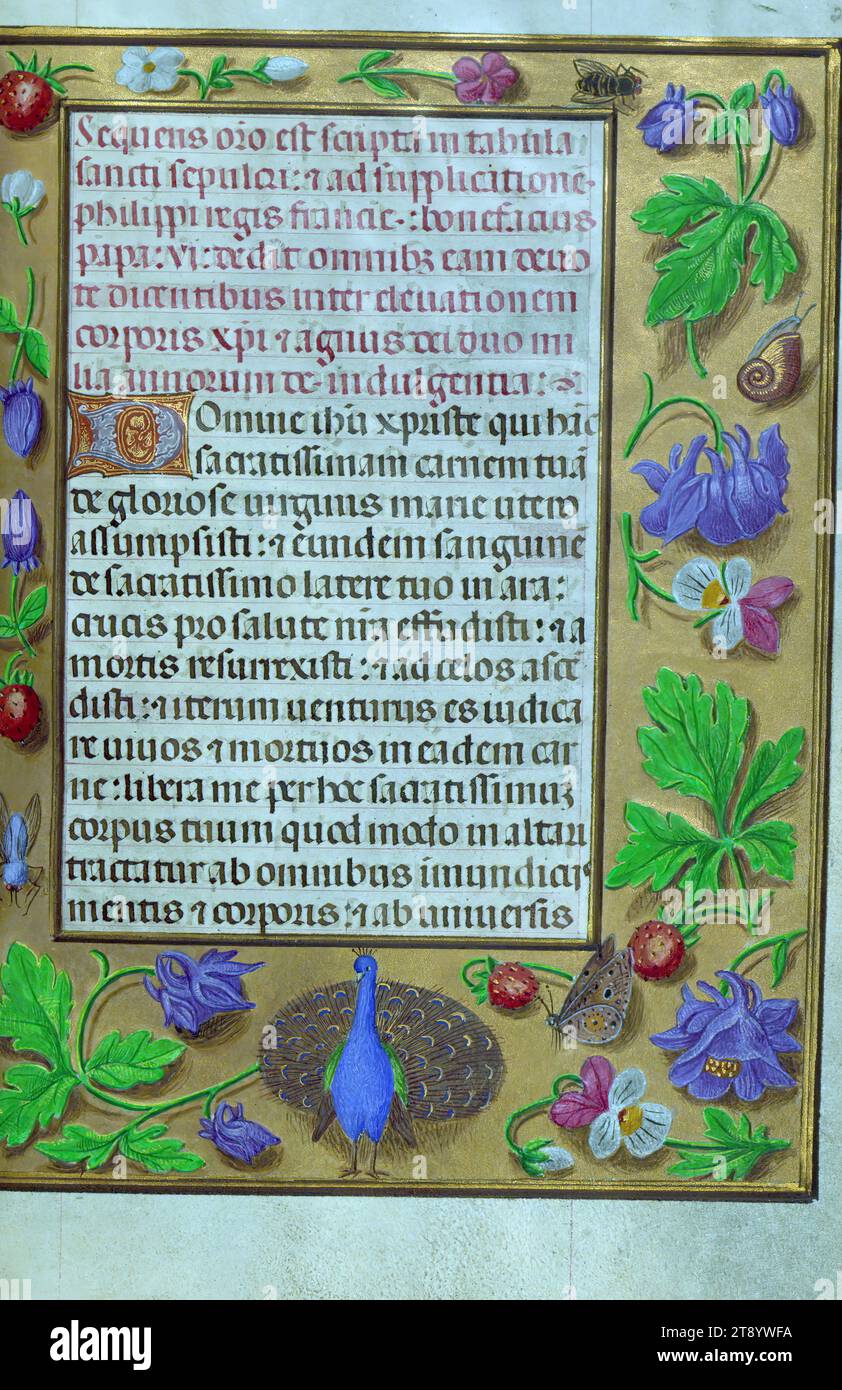 Sequens orō est scripta in tabula
sancti sepulcri: ⁊ ad supplicatione-
philippi regis francie-: bonefacius
papa: vi: dedit omnibꝫ eam deuo
te dicentibus inter eleuationem
corporis xp̄i ⁊ agnus dei duo mi
lia annorum de-indulgentia:
Domine ih̄u xp̄riste qui hāc
sacratissimam carnem tuā
de gloriose uirginis marie utero
assumpsisti: ⁊ eundem sanguinē
de sacratissimo latere tuo in ara:
crucis pro salute nr̄a effudisti: ⁊ a
mortis resurrexisti: ⁊ ad celos ascē
disti: ⁊ iterum uenturus es iudica
re uiuos ⁊ mortuos in eadem car
ne: libera me per hoc sacratissimuꝫ
corpus tuum quod modo in altari
tractatur ab omnibus īmundicijs
mentis ⁊ corporis: ⁊ ab uniuersis
alamy
Image ID: 2T81YWFA
www.alamy.com